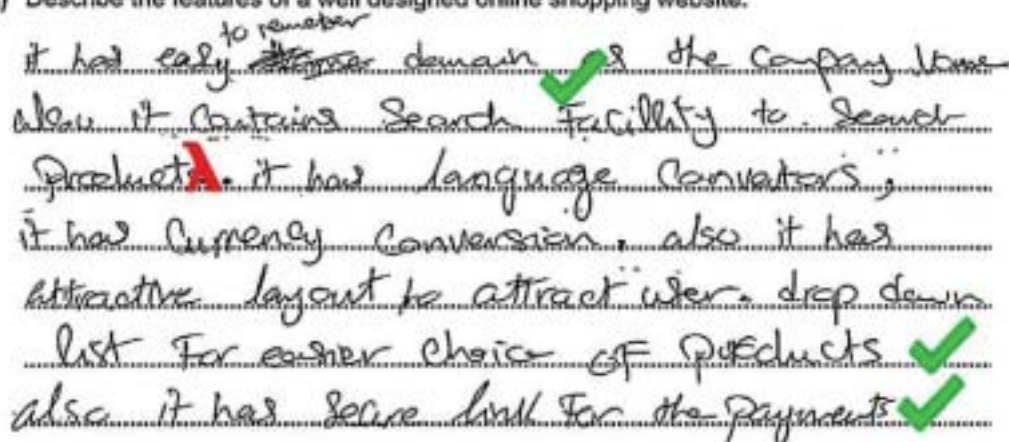 Describe the features of a well designed online shopping website.
to remeber
it has easy domain as the Company Name
also it Contains Search Facillity to Search
Products. it has language Convertors,
it has Currency Conversion. also it has
attractive layout to attract user. drop down
list For easier choice of products
also it has secure link For the payments